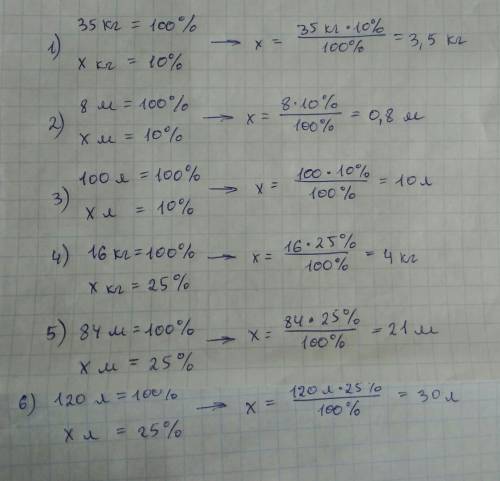 1) 35 кг = 100% → x = 35 кг · 10% / 100% = 3,5 кг
x кг = 10%
2) 8 м = 100% → x = 8 · 10% / 100% = 0,8 м
x м = 10%
3) 100 л = 100% → x = 100 · 10% / 100% = 10 л
x л = 10%
4) 16 кг = 100% → x = 16 · 25% / 100% = 4 кг
x кг = 25%
5) 84 м = 100% → x = 84 · 25% / 100% = 21 м
x м = 25%
6) 120 л = 100% → x = 120 л · 25% / 100% = 30 л
x л = 25%